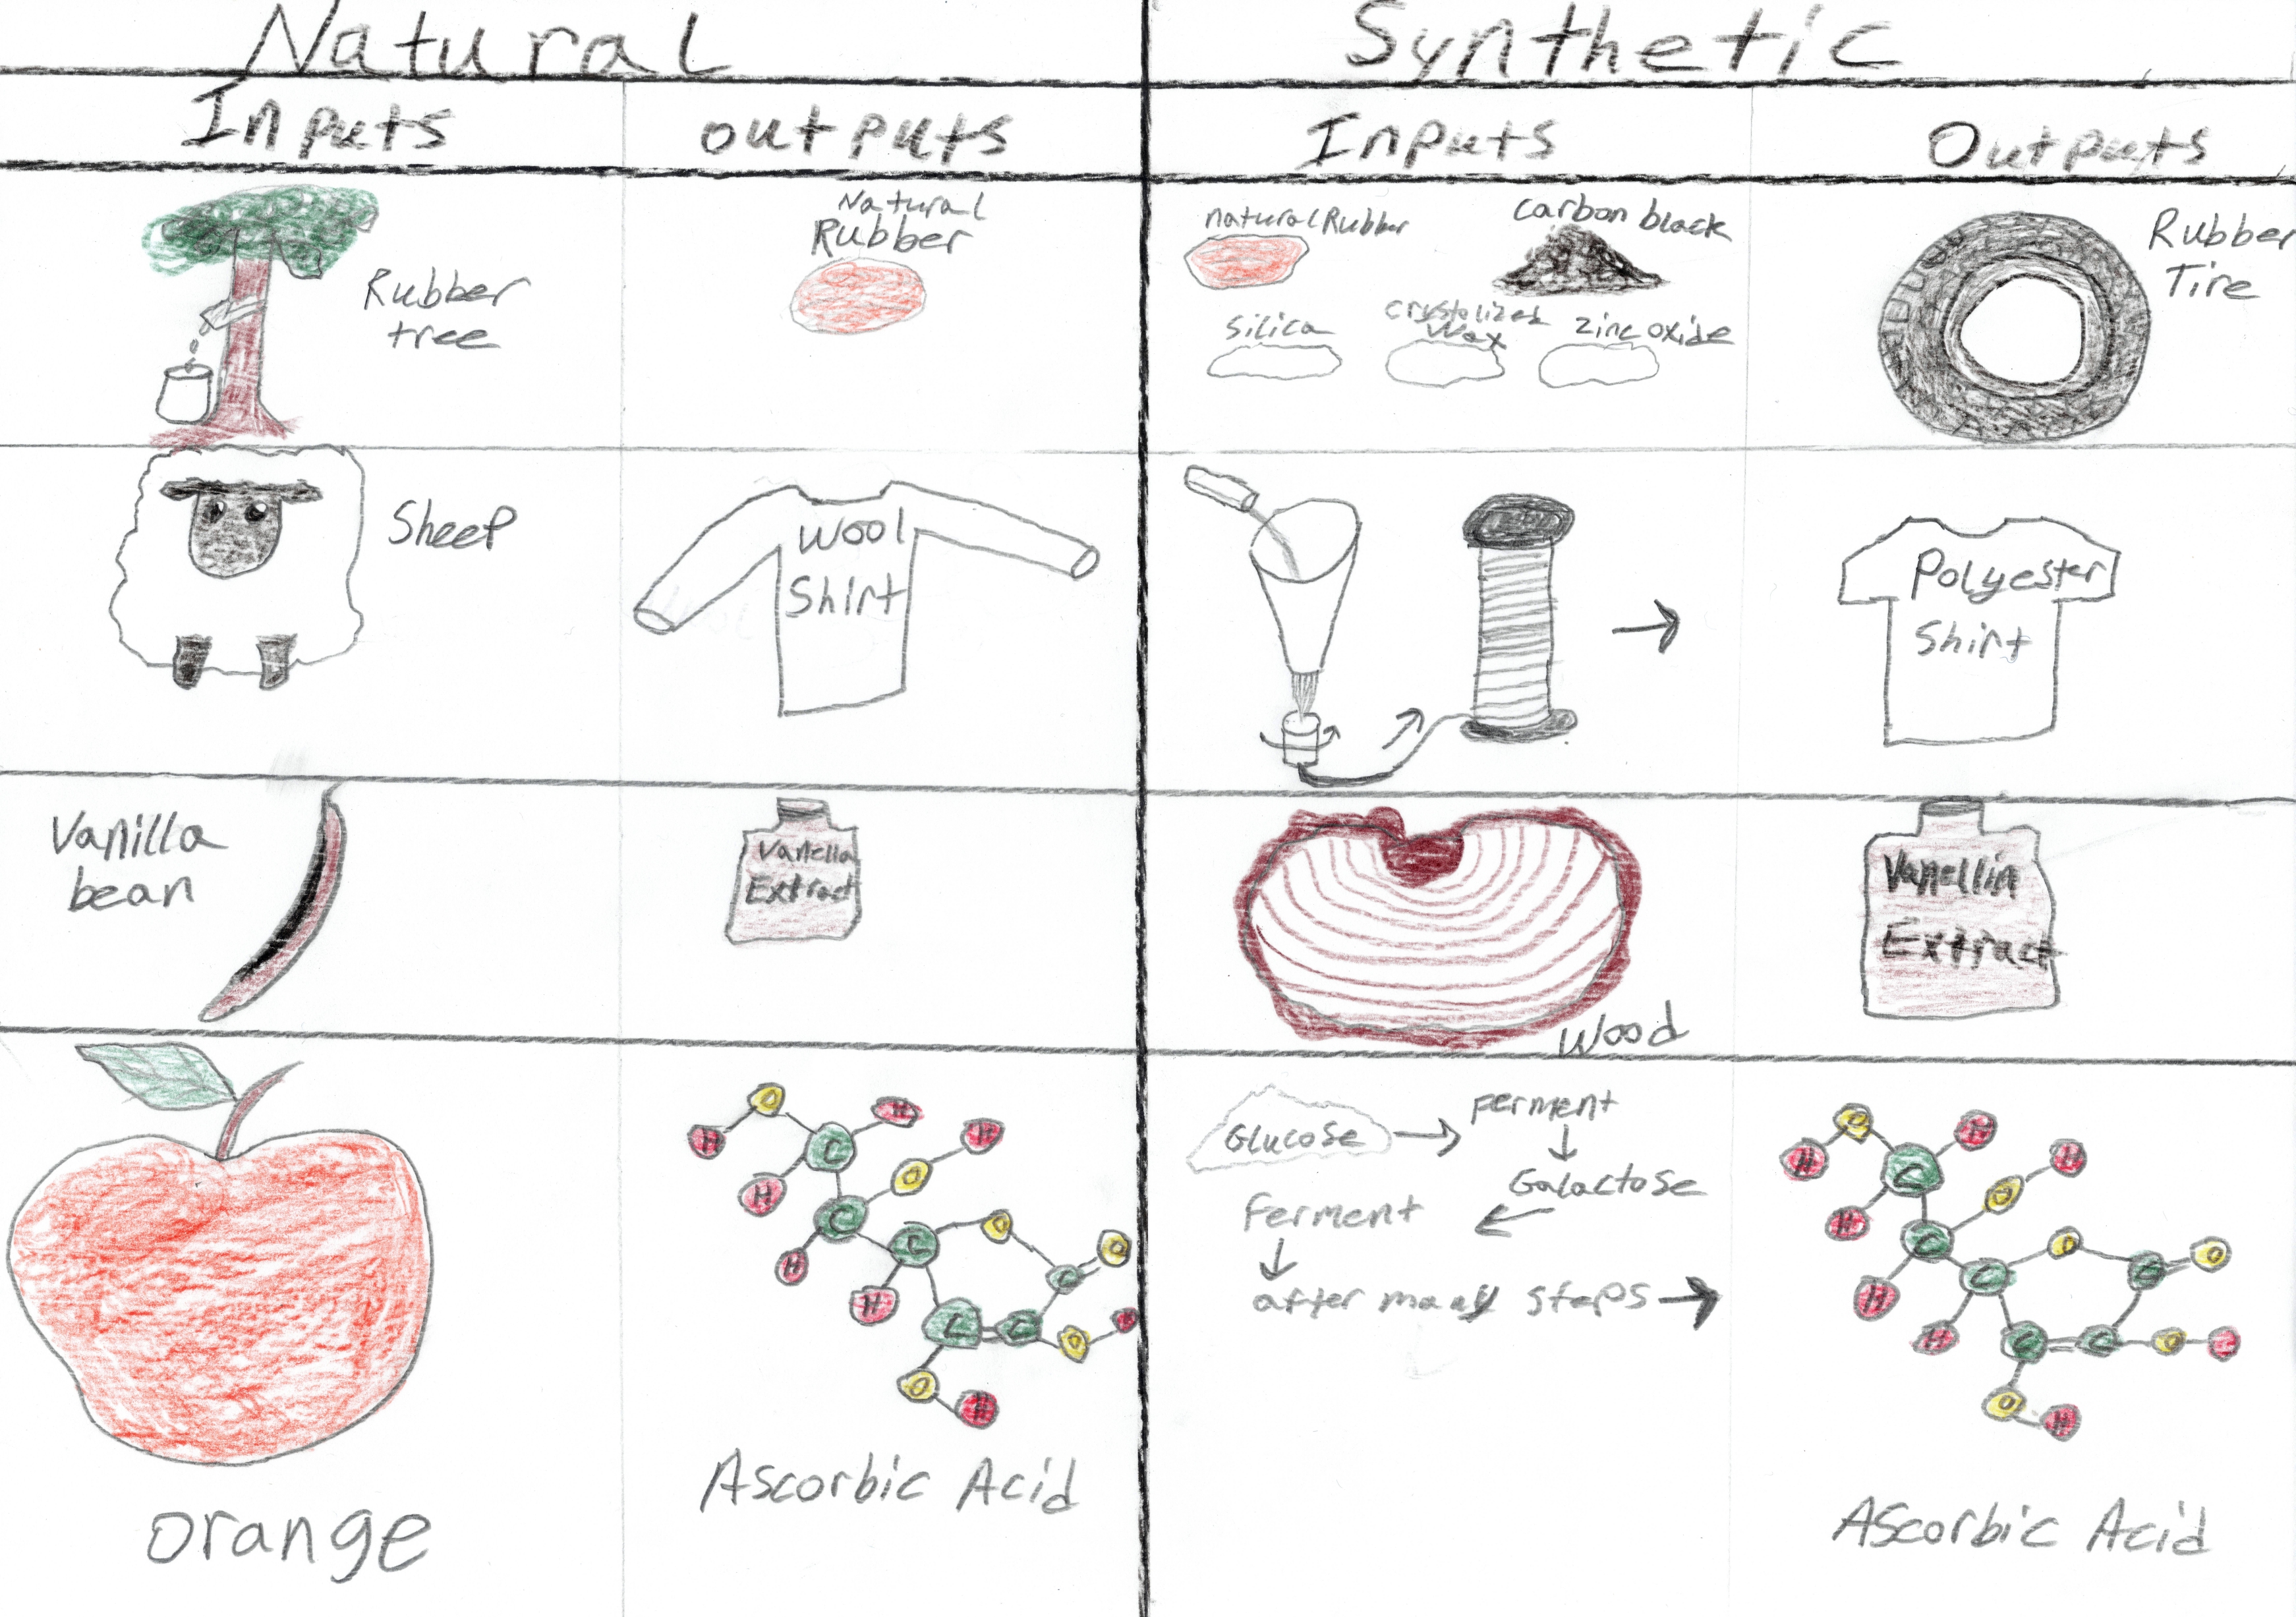 Natural
Synthetic
Inputs
outputs
Inputs
Outputs
Rubber
tree
Natural
Rubber
natural Rubber
carbon black
silica
crystolized
wax
zinc oxide
Rubber
Tire
Sheep
Wool
Shirt
Polyester
Shirt
Vanilla
bean
Vanella
Extract
Wood
Vanellin
Extract
orange
H
O
C
H
H
C
O
H
H
C
O
H
C
O
C
C
O
O
H
Ascorbic Acid
Glucose
Ferment
Galactose
Ferment
after many steps
H
O
C
H
H
C
O
H
H
C
O
H
C
O
C
C
O
H
O
H
Ascorbic Acid